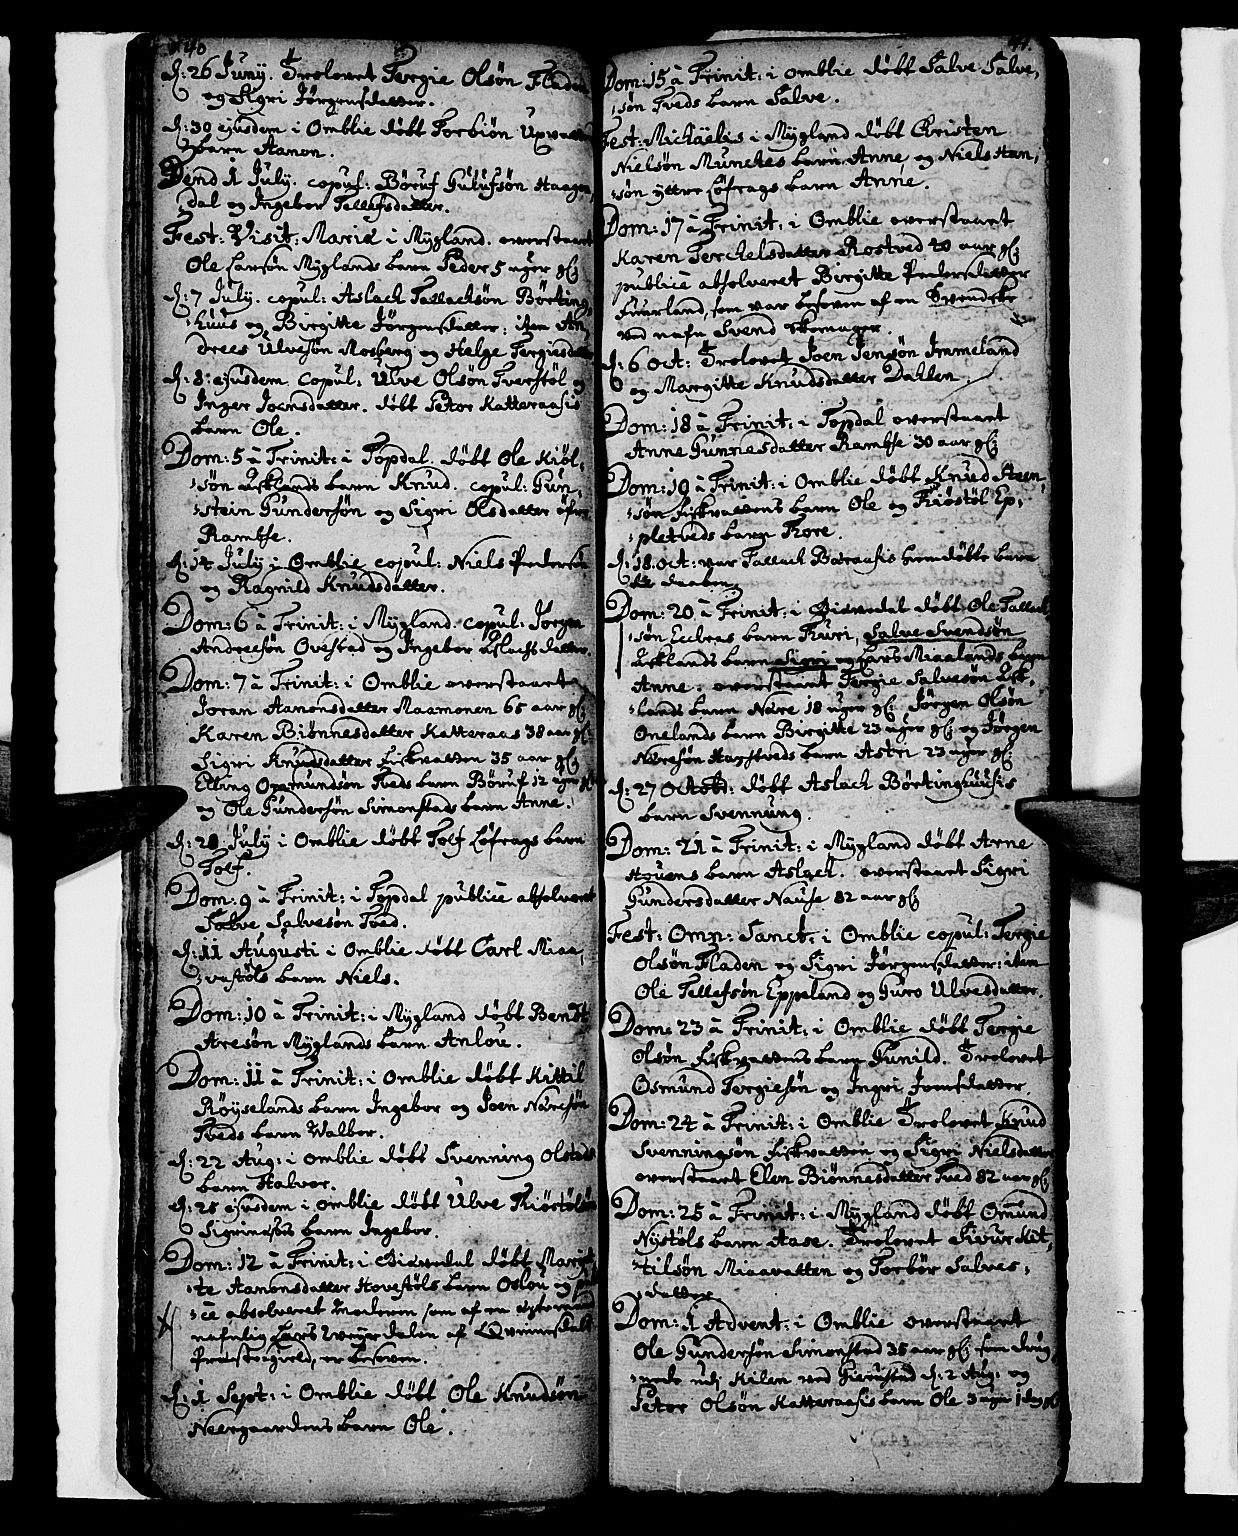 40
d: 26 Juny. Trolovet Tergie Olsøn Fladen
og Sigri Jørgensdatter.
d: 30 ejusdem i Omblie døbt Torbiøn Upvatten
barn Aamon.
Dend 1 July. copul: Børuf Gulufsøn Haagen,
dal og Ingebor Tellefsdatter.
Fest: Visit: Mariæ i Mygland. overstaaet
Ole Larsøn Myglands barn Peder 5 uger gl:
d: 7 July. copul: Aslach Tallachsøn Børting,
huus og Birgitte Jørgensdatter: item An,
drees Ulvesøn Mosberg og Helge Tergiesdatter
d: 8: ejusdem. copul: Ulve Olsøn Tverstøl og
Inger Joensdatter. døbt Petor Katteraasis
barn Ole.
Dom: 5 à Trinit: i Topdal. døbt Ole Kiøl,
søn Esklands barn Knud. copul: Gun,
stein Gundersøn og Sigri Olsdatter øfre
Ramse.
d: 14 July i Omblie copul: Niels Pedersøn
og Ragnild Knudsdatter.
Dom: 6 à Trinit: i Mygland. copul: Jørgen
Andreesøn Ovestad og Ingebor Aslachsdatter.
Dom: 7 à Trinit: i Omblie overstaaet
Joran Aamonsdatter Maamonen 65 aar gl:
Karen Biønnesdatter Katteraas 38 aar gl:
Sigri Knudsdatter Fiskvatten 35 aar gl:
Elling Opsmundsøn Tveds barn Børuf 12 uger gl:
og Ole Gundersøn Simonstads barn Anne.
d: 28 July i Omblie døbt Tolf Løfrags barn
Tolf.
Dom: 9 à Trinit: i Topdal publice absolveret
Salve Salvesøn Tved.
d: 11 Augusti i Omblie døbt Carl Miaa,
vestøls barn Niels.
Dom: 10 à Trinit: i Mygland døbt Bendt
Aresøn Myglands barn Anlou.
Dom: 11 à Trinit: i Omblie døbt Kittil
Røyselands barn Ingebor og Joen Naresøn
Tveds barn Walbor.
d: 22 Aug: i Omblie døbt Svenning Olstads
barn Halvor.
d: 25 ejusdem i Omblie døbt Ulve Kiøstølsøn
barn Ingebor.
Dom: 12 à Trinit: i døbt Margit
te Aamonsdatter Hovestøls barn Oslou og publi
cè absolveret moderen som af en
nafnlig Lars af Qvinnesdals
Præstegield, er besoven.
d: 1 Sept: i Omblie døbt Ole Knudsøn
Neergaardens barn Ole.
41.
Dom: 15 à Trinit: i Omblie døbt Salve Salve,
søn Tveds barn Salve.
Fest: Michaëlis i Mygland døbt Christen
Nielsøn Munches barn Anne og Niels Han,
søn yttre Løfrags barn Anne.
Dom: 17 à Trinit: i Omblie overstaaet
Karen Terchelsdatter Rostved 40 aar gl:
publicè absolveret Birgitte Pedersdatter
Fuurland, som var besoven af en Svendske
ved nafn Svend Skomager.
d: 6 Oct: Trolovet Joen Jensøn Immeland
og Margitte Knudsdatter Dahlen.
Dom: 18 à Trinit: i Topdal overstaaet
Anne Gunnesdatter Ramse 30 aar gl:
Dom: 19 à Trinit: i Omblie døbt Knud Steen,
søn Fiskvattens barn Ole og Kiøstøl Ep,
pletveds barn Tore.
d: 18. Oct: var Tallach Baasaasis hiemdøbte barn
til daaben.
Dom: 20 à Trinit: i døbt Ole Tallach
søn Ecleas barn Turi, Salve Svendsøn
Esklands barn Sigri og Lars Miaalands barn
Anne. overstaaet Tergie Salvesøn Esk,
lands barn Nare 18 uger gl: Jørgen Olsøn
Onelands barn Birgitte 23 uger gl: og Jørgen
Naresøn Haugtveds barn Astri 23 uger gl:
d: 27 Octobr: døbt Aslach Børtinghuusis
barn Svennung.
Dom: 21 à Trinit: i Mygland døbt Arne
Houens barn Aslach. overstaaet Sigri
Gundersdatter Nause 82 aar gl:
Fest: Omn: Sanct: i Omblie copul: Tergie
Olsøn Fladen og Sigri Jørgensdatter: item
Ole Tellefsøn Eppeland og Guro Ulvesdatter.
Dom: 23 à Trinit: i Omblie døbt Tergie
Olsøn Fiskvattens barn Gunild. Trolovet
Osmund Tergiesøn og Ingri Joensdatter
Dom: 24 à Trinit: i Omblie Trolovet Knud
Svenningsøn Fiskvatten og Sigri Nielsdatter
overstaaet Elen Biønnesdatter Tved 82 aar gl:
Dom: 25 à Trinit: i Mygland døbt Omund
Nystøls barn Aase. Trolovet Sivur Kit,
tilsøn Miaavatten og Torbor Salves,
datter.
Dom: 1 Advent: i Omblie overstaaet
Ole Gundersøn Simonstad 35 aar gl: som drug,
nede udj Kilen ved Gierustad d: 2 Aug: og
Petor Olsøn Katteraasis barn Ole 3 uger 1 dag gl: